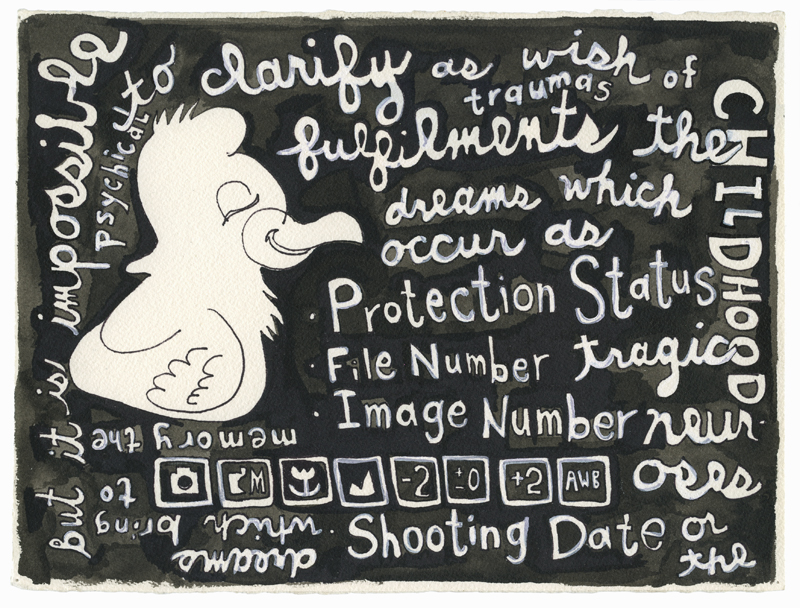 but it is impossible
to clarify as wish
fulfilments the
dreams which
occur as
tragic
neur
oses
or
the
dreams
which bring to
the memory
psychical
traumas of
CHILDHOOD
· Protection Status
· File Number
· Image Number
M -2 ±0 +2 AWB
· Shooting Date